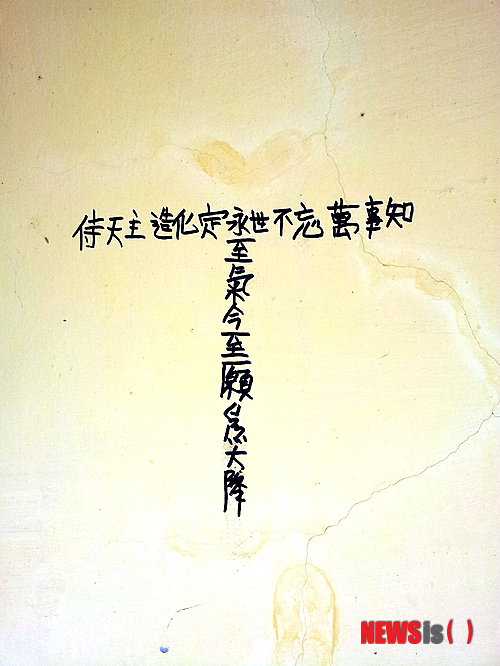 侍天主造化定永世不忘萬事知
至氣今至願爲大降
NEWSis( )